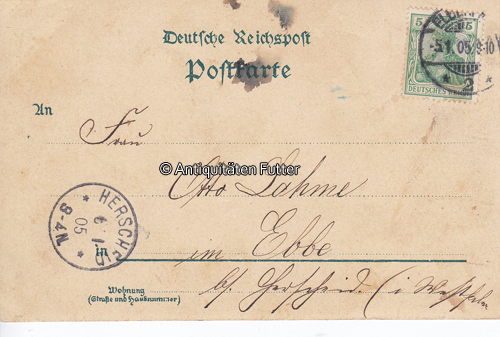 Deutsche Reichspost
Postkarte
5
5.1.05.9-10
2
DEUTSCHES REICH
An
Frau
© Antiquitäten Futter
Otto Lahme
HERSCH
05
8-4N
in
im Ebbe
bs. Herscheid. (i Westfalen
Wohnung
(Straße und Hausnummer)